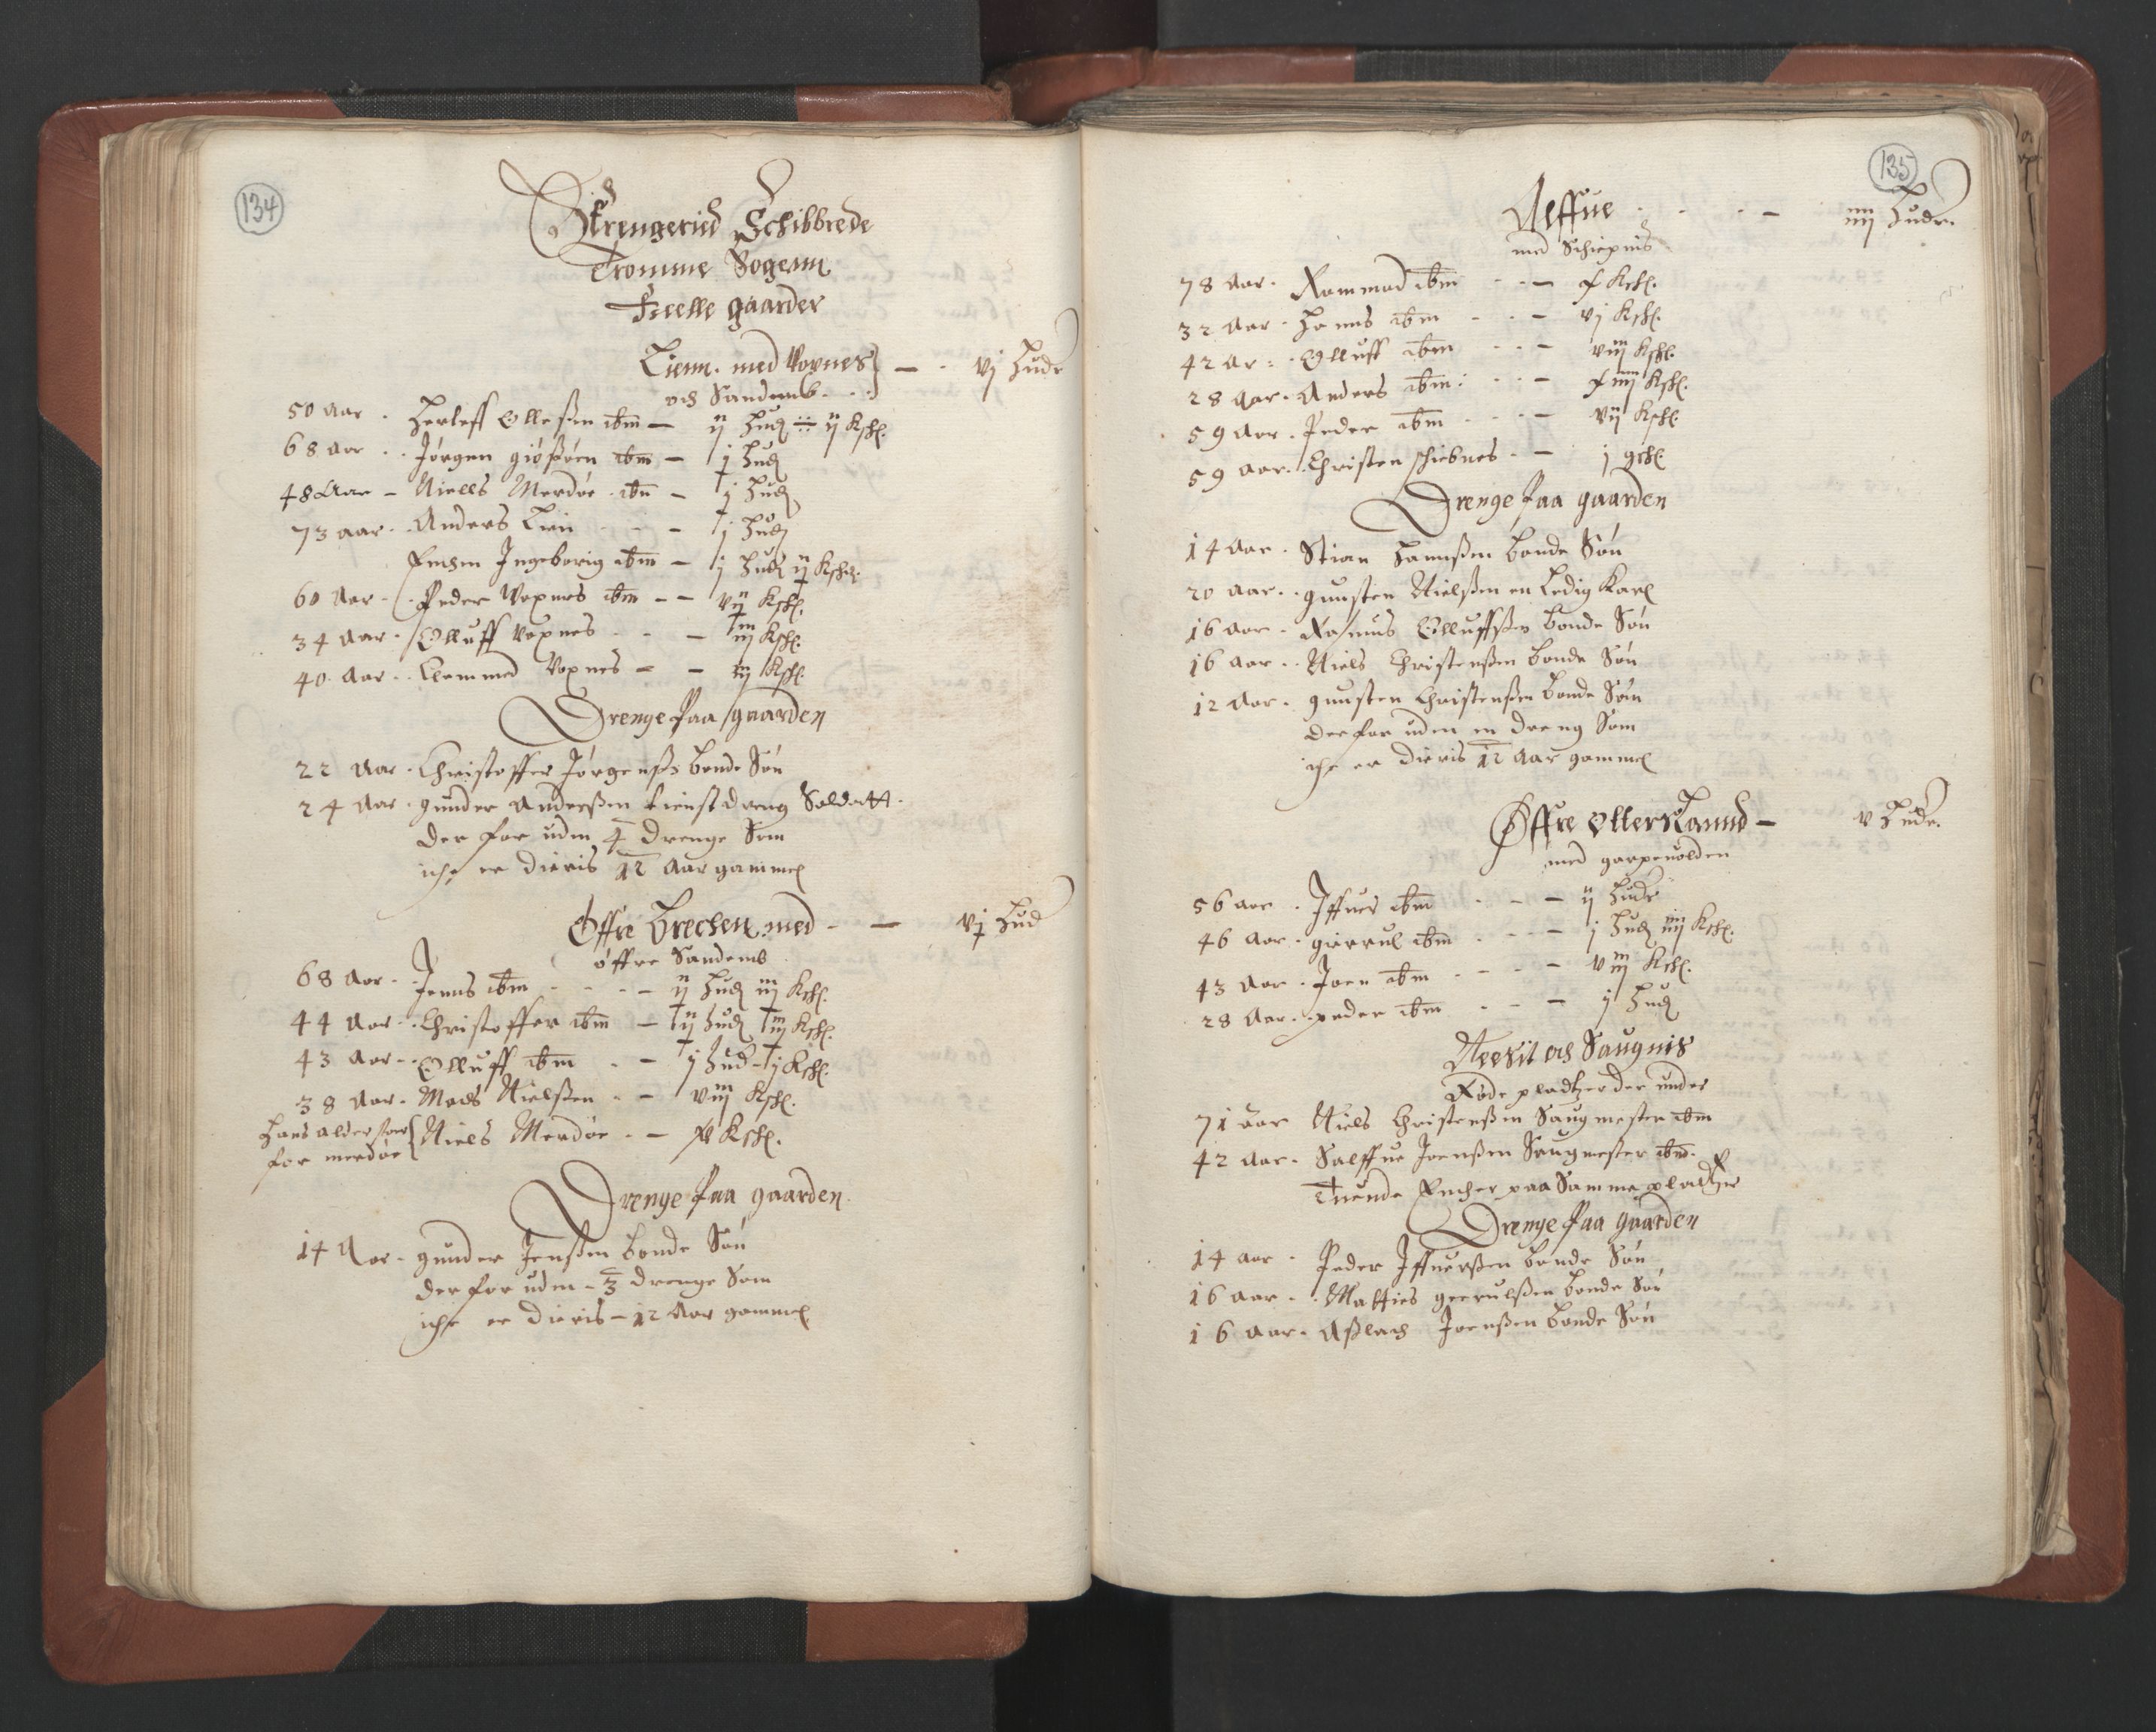 134
Strengeried Schibbrede
Tromme Sogenn
Fuelle gaarder
Lienn. med Voxnes - vj Hude
och Sandumb
50 aar . Herleff Ollesßen ibm - ij Hud ÷ ij Kschl.
68 aar . Jørgen giøßøen ibm - j Hud
48 Aar - Niells Merdøe ibm - j Hud
73 aar . Anders Lien - j Hud
Enchen Ingeborig ibm - j Hud ij Kschl.
60 Aar . Peder Voxnes ibm - vij Kschl.
34 Aar . Olluff Voxnes - iiij Kschl.
40 Aar . Clemmed Voxnes - iij Kschl.
Drenge paa gaarden
22 Aar . Christoffer Jørgenß: bonde Søn
24 Aar . gunder Anderßen tienst dreng Soldatt.
der for uden 4 drenge Som
iche er dieris 12 Aar gammel
Øffre Brechen med - vj Hud
øffre Sandemb
68 Aar . Jenns ibm - ij Hud iij Kschl.
44 Aar . Christoffer ibm - ij Hud iij Kschl.
43 Aar . Olluff ibm - j Hud - j Kschl.
38 Aar . Mads Nielßen - viij Kschl.
Niels Merdøe - Kschl.
for merdøe
Drenge paa gaarden.
14 Aar . gunder Jenßen bonde Søn
der for uden - 3 drenge Som
iche er dieris - 12 Aar gammel
135
Aeffue - iiij Huder
med Schiepnis
78 Aar . Rammod ibm - x Kschl.
32 Aar . Hanns ibm - vj Kschl.
42 Ar : . Olluff ibm - viij Kschl.
28 Aar . Anders ibm : - xiiij Kschl.
59 Aar . Peder ibm - vij Kschl.
59 aar . Christen schiebnes - j gschl
Drenge paa gaarden
14 Aar . Stian Hannßen bonde Søn
20 aar . gunsten Nielßen en Ledig Karl
16 aar . Rasmus Olluffßen bonde Søn
16 aar . Niels Christenßen bonde Søn
12 Aar . gunsten Christenßen bonde Søn
der for uden en dreng Som
iche er dieris 12 Aar gammel
Øffre Ollerstamb - v Huder.
med garpeuolden
56 aar . Iffuer ibm - ij Hude
46 Aar . gierrul ibm - j Hud iiij Kschl.
43 Aar . Joen ibm - viij Kschl.
28 Aar . peder ibm - j Hud
Neskil och Saugnis
Øde pladtzer der under
71 aar Niels Christenßen Saugmester ibm
42 Aar . Salffue Joenßen Saugmester ibm.
Tuende Encher paa Samme pladtzer
Drenge paa gaarden
14 aar . Peder Iffuerßen bonde Søn
16 aar . Matties geerulßen bonde Søn
16 aar . Aßlach Joenßen bonde Søn